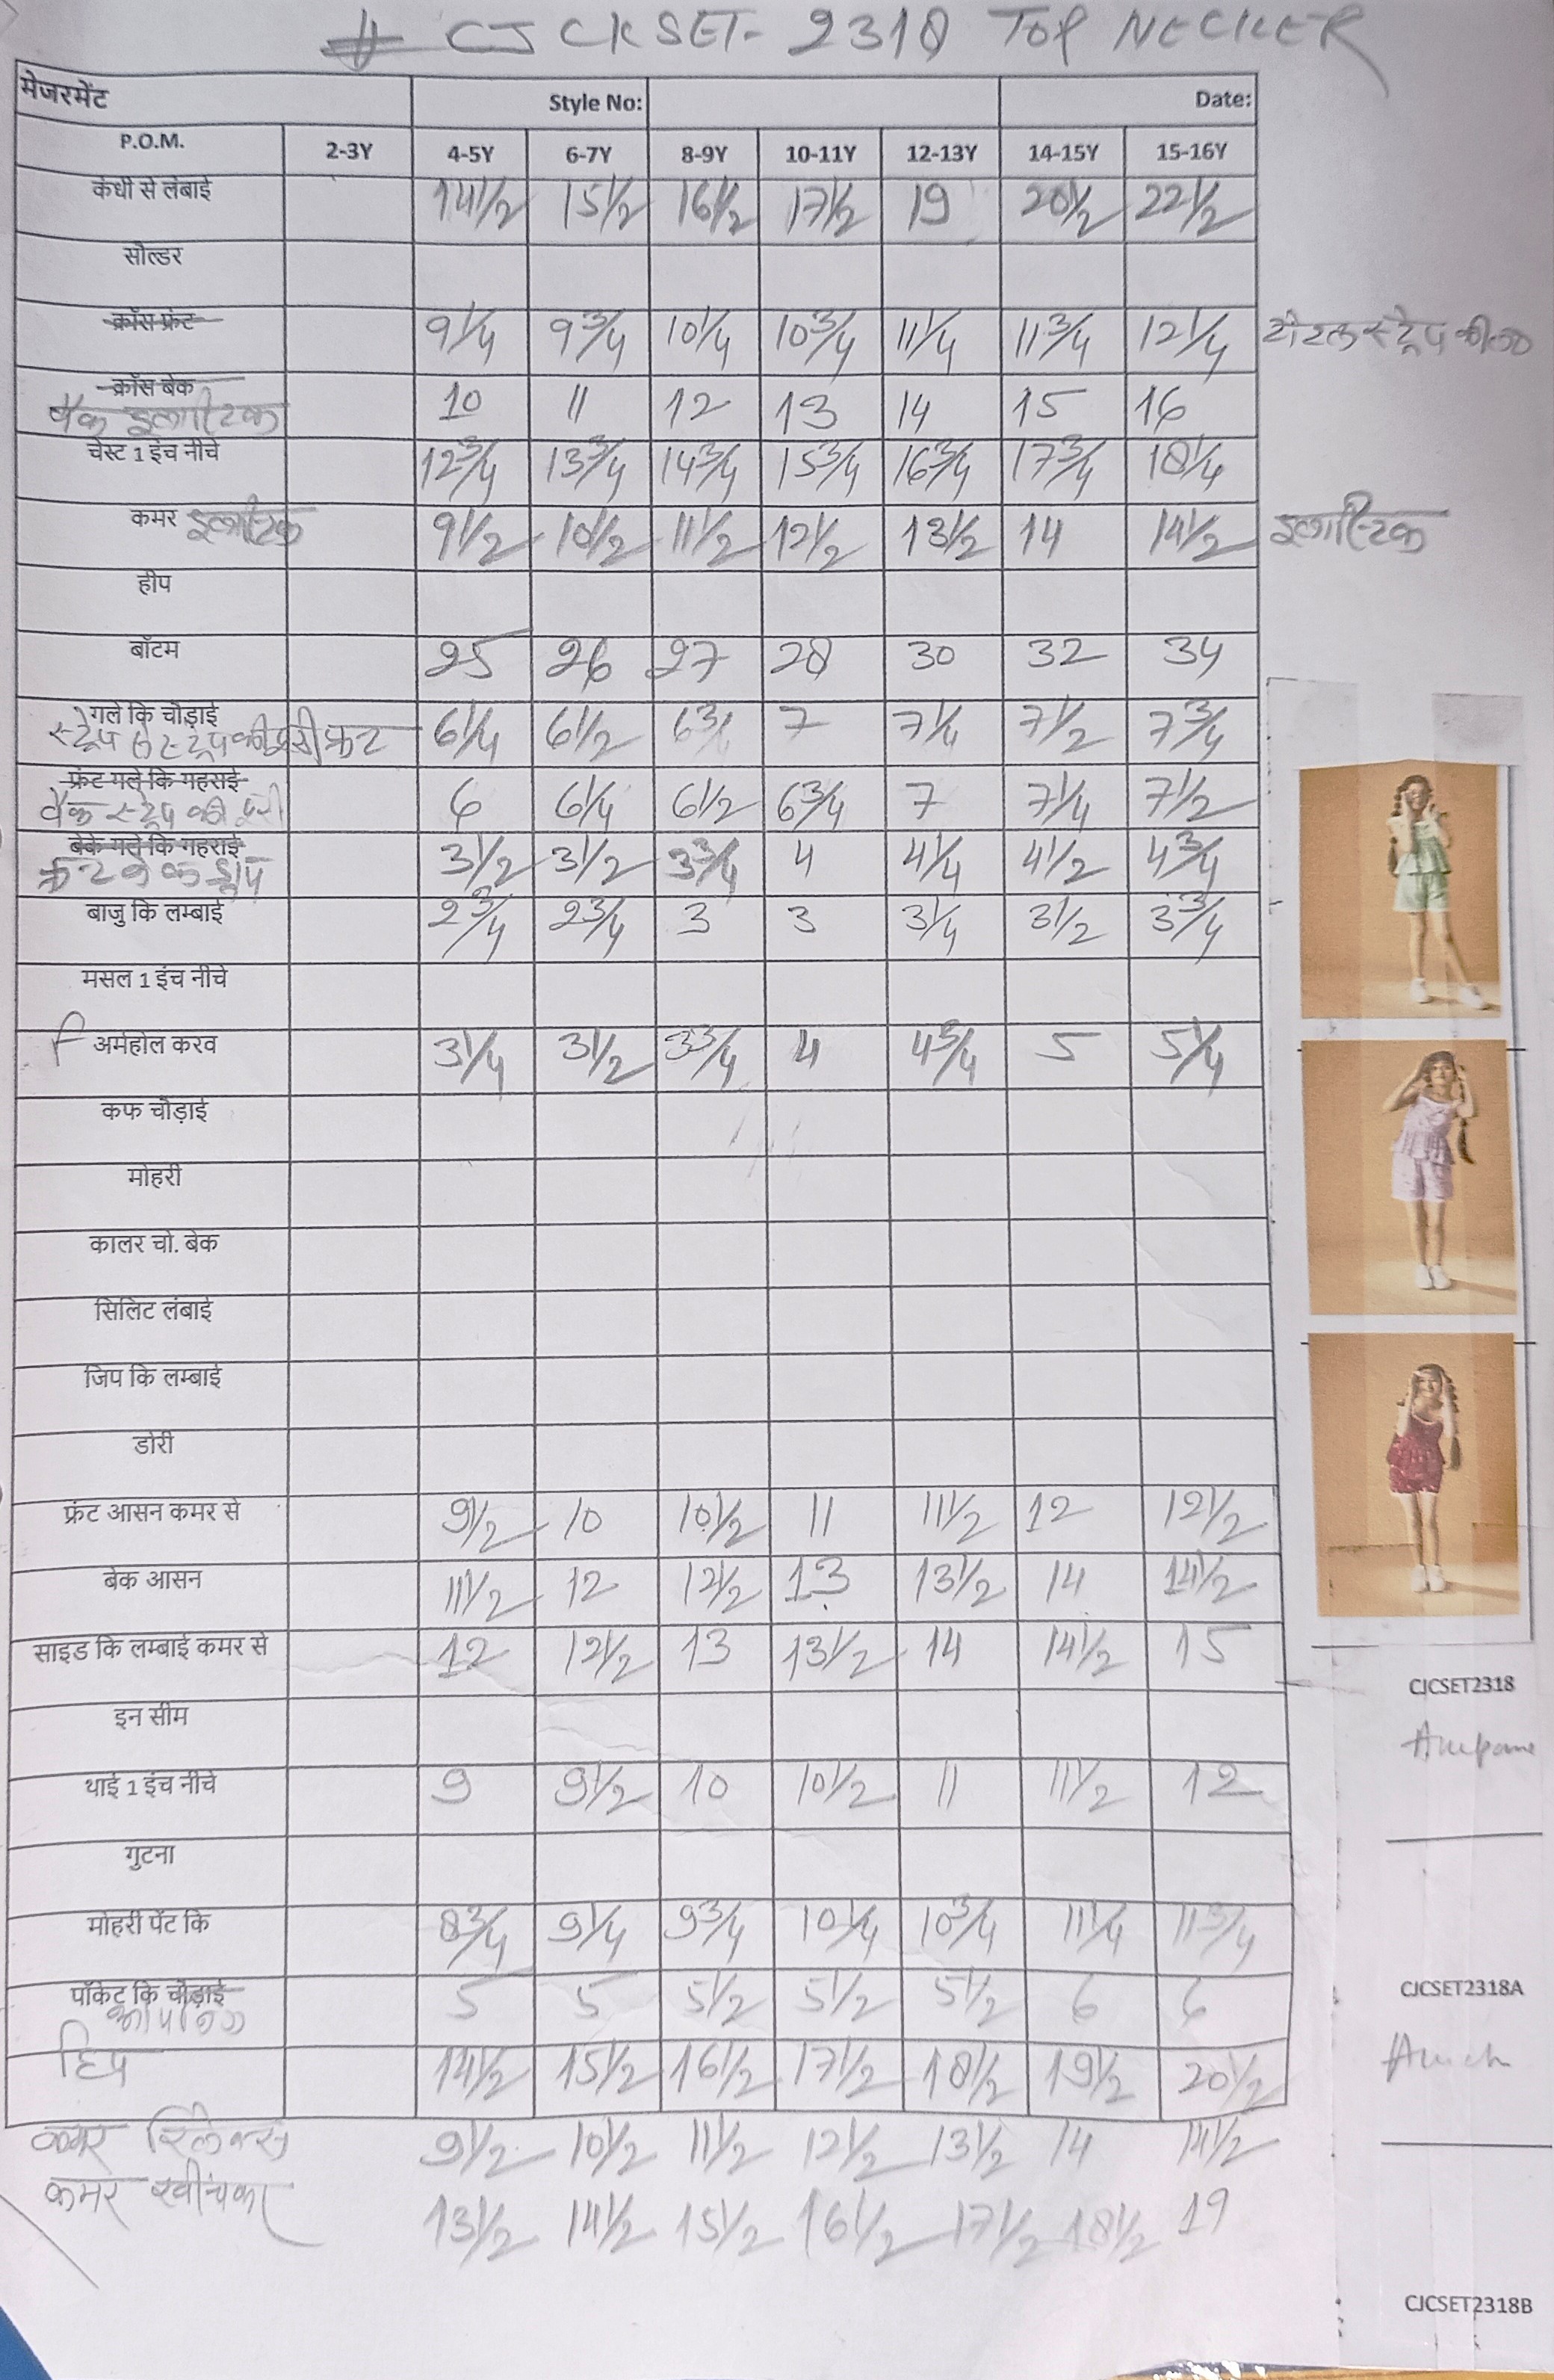 # CJCKSET-2318 TOP NECKER
मेजरमेंट Style No: Date:
P.O.M. 2-3Y 4-5Y 6-7Y 8-9Y 10-11Y 12-13Y 14-15Y 15-16Y
कंधी से लंबाई 14 1/2 15 1/2 16 1/2 17 1/2 19 20 1/2 22 1/2
सोल्डर
क्रॉस फ्रंट 9 1/4 9 3/4 10 1/4 10 3/4 11 1/4 11 3/4 12 1/4 टोटल स्ट्रैप की ल०
क्रॉस बेक
बैक इलास्टिक 10 11 12 13 14 15 16
चेस्ट 1 इंच नीचे 12 3/4 13 3/4 14 3/4 15 3/4 16 3/4 17 3/4 18 1/4
कमर इलास्टिक 9 1/2 10 1/2 11 1/2 12 1/2 13 1/2 14 14 1/2 इलास्टिक
हीप
बॉटम 25 26 27 28 30 32 34
गले कि चौड़ाई
स्ट्रैप से स्ट्रैप की दूरी फ्रंट 6 1/4 6 1/2 6 3/4 7 7 1/4 7 1/2 7 3/4
फ्रंट गले कि गहराई
बैक स्ट्रैप की दूरी 6 6 1/4 6 1/2 6 3/4 7 7 1/4 7 1/2
बेक गले कि गहराई
फ्रंट नेक ड्रॉप 3 1/2 3 1/2 3 3/4 4 4 1/4 4 1/2 4 3/4
बाजु कि लम्बाई 2 3/4 2 3/4 3 3 3 1/4 3 1/2 3 3/4
मसल 1 इंच नीचे
अर्महोल करव 3 1/4 3 1/2 3 3/4 4 4 3/4 5 5 1/4
कफ चौड़ाई
मोहरी
कालर चो. बेक
सिलिट लंबाई
जिप कि लम्बाई
डोरी
फ्रंट आसन कमर से 9 1/2 10 10 1/2 11 11 1/2 12 12 1/2
बेक आसन 11 1/2 12 12 1/2 13 13 1/2 14 14 1/2
साइड कि लम्बाई कमर से 12 12 1/2 13 13 1/2 14 14 1/2 15
इन सीम
थाई 1 इंच नीचे 9 9 1/2 10 10 1/2 11 11 1/2 12
गुटना
मोहरी पेंट कि 8 3/4 9 1/4 9 3/4 10 1/4 10 3/4 11 1/4 11 3/4
पॉकेट कि चौड़ाई 5 5 5 1/2 5 1/2 5 1/2 6 6
हिप 14 1/2 15 1/2 16 1/2 17 1/2 18 1/2 19 1/2 20 1/2
कमर रिलेक्स 9 1/2 10 1/2 11 1/2 12 1/2 13 1/2 14 14 1/2
कमर खींचकर 13 1/2 14 1/2 15 1/2 16 1/2 17 1/2 18 1/2 19
CJCSET2318
CJCSET2318A
CJCSET2318B